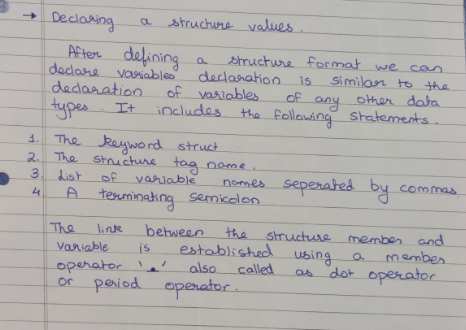 → Declaring a structure values.
After defining a structure format we can
declare variables declaration is similar to the
declaration of variables of any other data
types. It includes the following statements.
1. The keyword struct
2. The structure tag name.
3. List of variable names seperated by commas
4. A terminating semicolon
The link between the structure member and
variable is established using a member
operator '.' also called as dot operator
or period operator.